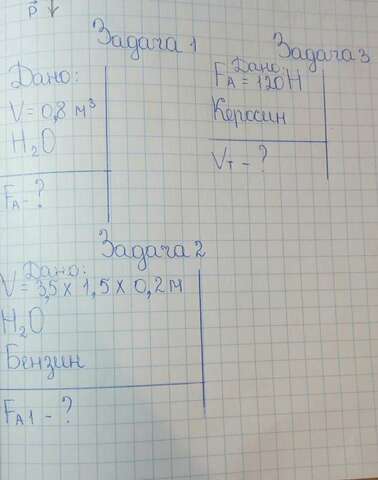 P
Задача 1
Дано:
V = 0,8 м³
H₂O
FA - ?
Задача 3
Дано:
FA = 120 Н
Керосин
Vт - ?
Задача 2
Дано:
V = 3,5 х 1,5 х 0,2 м
H₂O
Бензин
FA1 - ?